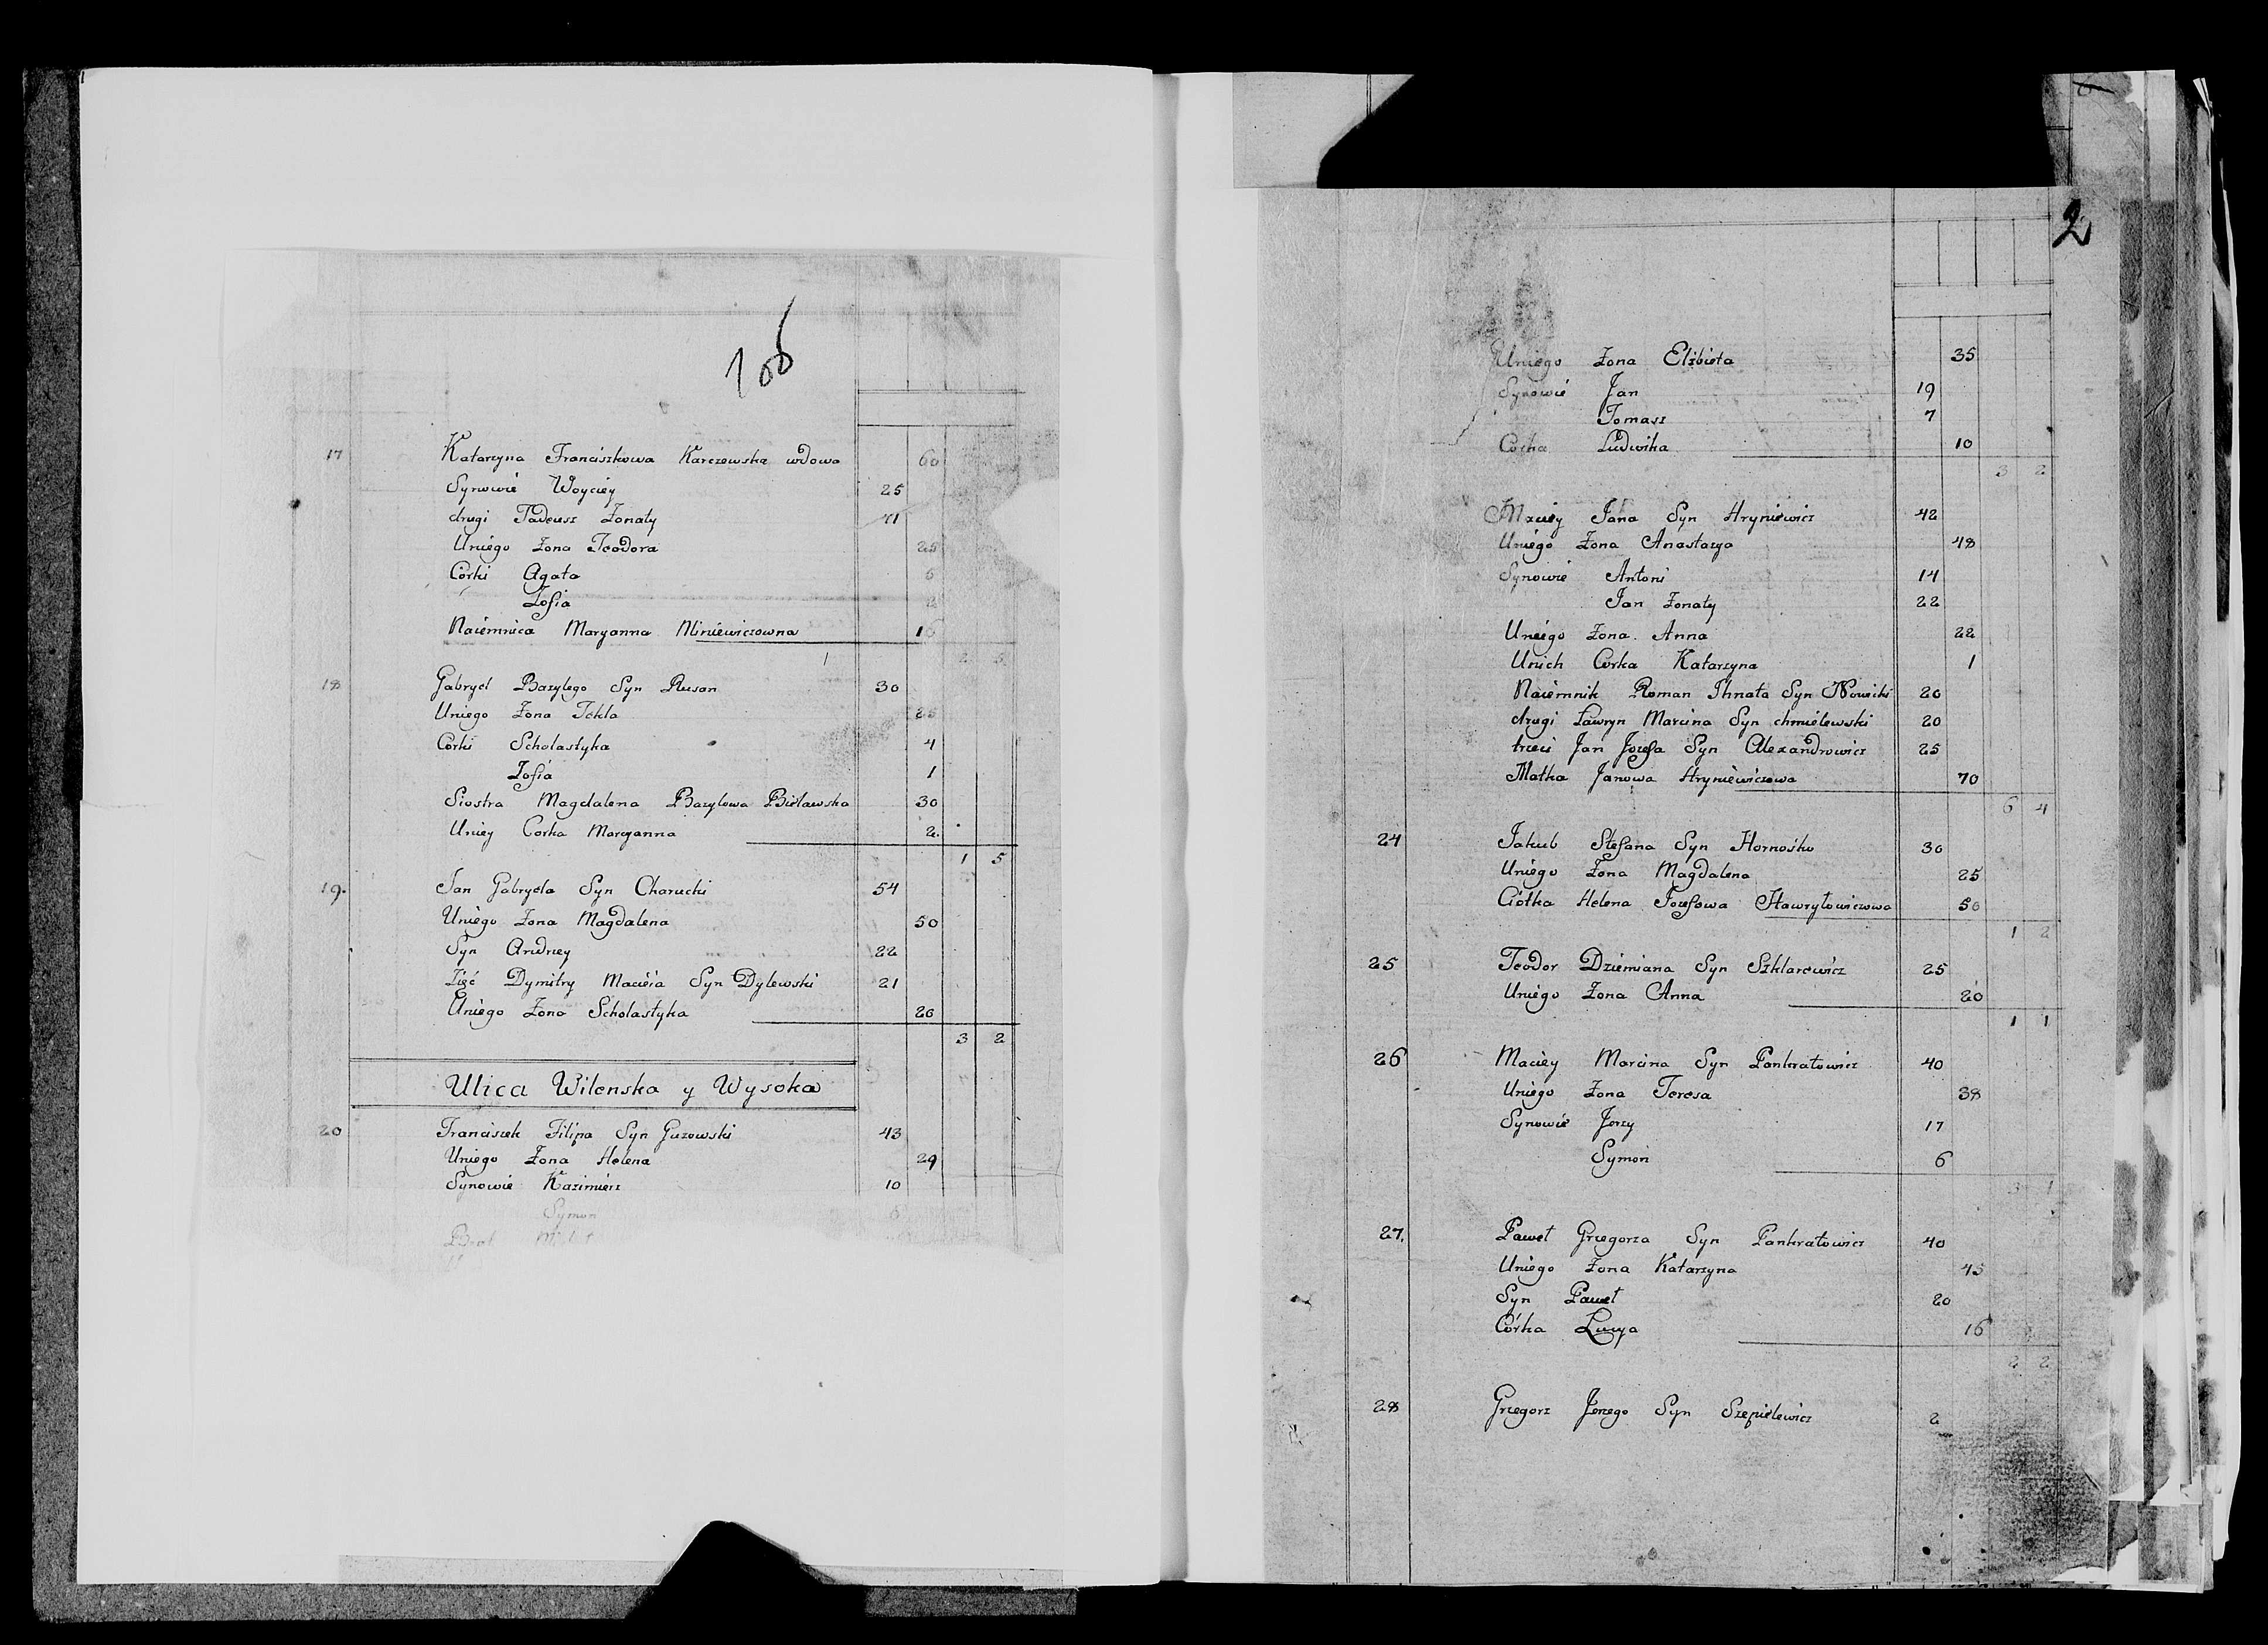 106
17 Katarzyna Franciszkowa Karczewska wdowa 60
Synowie Woyciey 25
drugi Tadeusz Żonaty 41
Uniego Żona Teodora 25
Corki Agata 6
Zofia 2
Naiemnica Maryanna Miniewiczowna 16
2 5
18 Gabryel Bazylego Syn Rusan 30
Uniego Żona Tekla 25
Corki Scholastyka 4
Zofia 1
Siostra Magdalena Bazylowa Bielawska 30
Uniey Corka Maryanna 2.
1 5
19. Jan Gabryela Syn Charucki 54
Uniego Żona Magdalena 50
Syn Andrzey 22
Zięć Dymitry Macieia Syn Dylewski 21
Uniego Żona Scholastyka 20
3 2
Ulica Wilenska y Wysoka
20 Franciszek Filipa Syn Guzowski 43
Uniego Żona Helena 29
Synowie Kazimierz 10
Symon 6
2
Uniego Żona Elżbieta 35
Synowie Jan 19
Tomasz 7
Corka Ludwika 10
3 2
Maciey Jana Syn Hryniewicz 42
Uniego Żona Anastazya 48
Synowie Antoni 14
Jan Żonaty 22
Uniego Żona Anna 22
Unich Corka Katarzyna 1
Naiemnik Roman Ihnata Syn Nowicki 20
drugi Ławryn Marcina Syn chmielewski 20
trzeci Jan Jozefa Syn Alexandrowicz 25
Matka Janowa Hryniewiczowa 70
6 4
24 Jakub Stefana Syn Hornośko 30
Uniego Żona Magdalena 25
Ciotka Helena Jozefowa Hawryłowiczowa 50
1 2
25 Teodor Dziemiana Syn Szklarewicz 25
Uniego Żona Anna 20
1 1
26 Maciey Marcina Syn Pankratowicz 40
Uniego Żona Teresa 38
Synowie Jerzy 17
Symon 6
3 1
27. Paweł Grzegorza Syn Pankratowicz 40
Uniego Żona Katarzyna 45
Syn Paweł 20
Córka Łucya 16
2 2
28 Grzegorz Jerzego Syn Szepielewicz 2